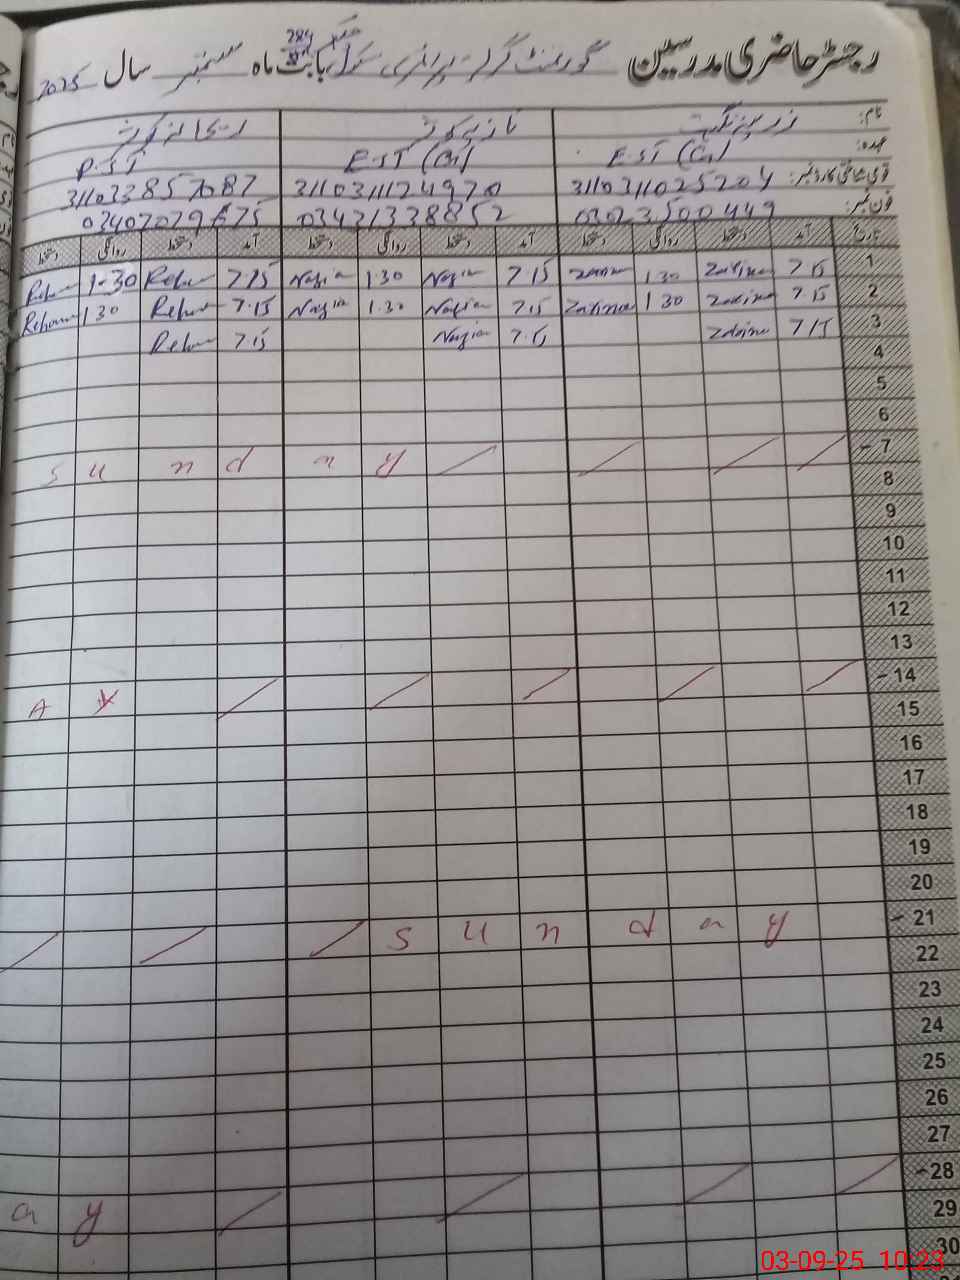 رجسٹر حاضری مدرسین گورنمنٹ گرلز پرائمری سکول بابت ماہ ستمبر سال 2025
284
نام:
عہدہ: E.ST P.ST
قومی شناختی کارڈ نمبر: 3110311025204 3110311124970 311033857087
فون نمبر: 03023500449 03421338852
تاریخ آمد دستخط روانگی دستخط آمد دستخط روانگی دستخط آمد دستخط روانگی دستخط
1 7.15 Zarina 1.30 Zarina 7.15 Nazia 1.30 Nazia 7.15 1-30
2 7.15 Zarina 1 30 Zarina 7.15 Nazia 1.30 Nazia 7.15 1 30
3 7.15 Zarina 7.15 Nazia 7.15
4
5
6
7 S u n d a y
8
9
10
11
12
13
14 A y
15
16
17
18
19
20
21 S u n d a y
22
23
24
25
26
27
28 a y
29
30
03-09-25 10:23